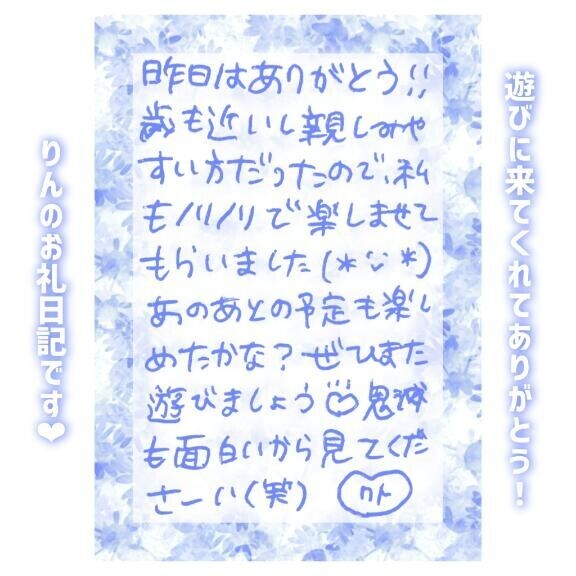 遊びに来てくれてありがとう！
昨日はありがとう!!
歳も近いし親しみや
すい方だったので、私
もノリノリで楽しませて
もらいました(*'ᵕ'*)
あのあとの予定も楽し
めたかな？ぜひまた
遊びましょう♡鬼滅
も面白いから見てくだ
さーい(笑)
りんのお礼日記です❤